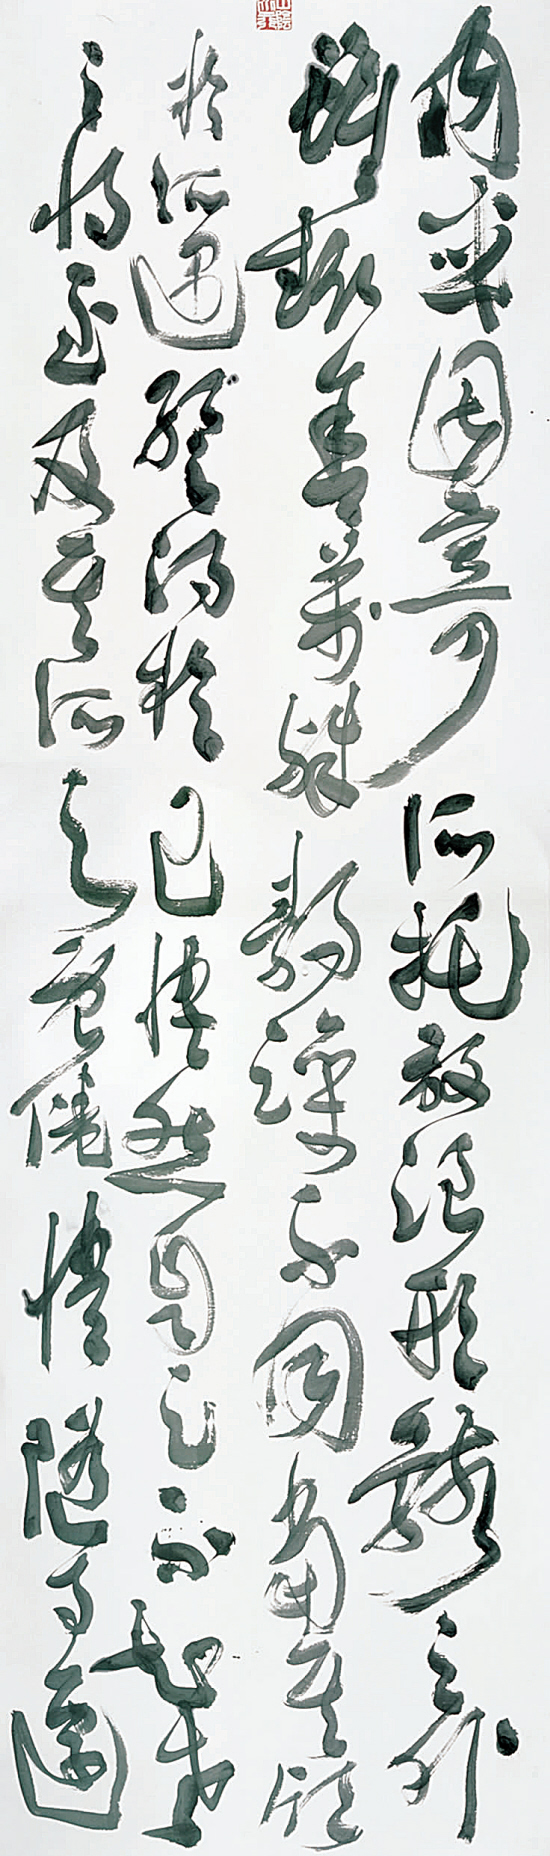 內或因寄所托放浪形骸之外
雖趣舍萬殊靜躁不同當其欣
於所遇暫得於己快然自足不知老
之將至及其所之既倦情隨事遷